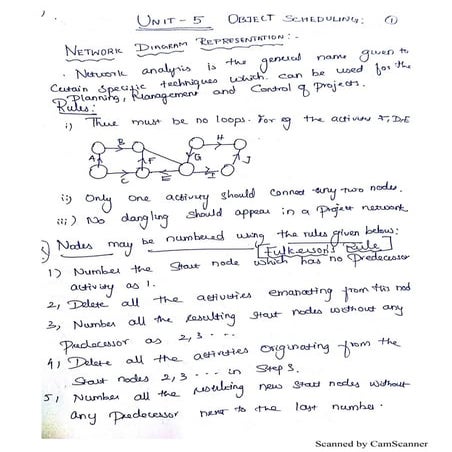 UNIT - 5 OBJECT SCHEDULING: 1
NETWORK DIAGRAM REPRESENTATION:-
. Network analysis is the general name given to
Certain Specific techniques which can be used for the
Planning, Management and Control of Projects.
Rules:
i) There must be no loops. For eg the activity F, D, E
B H
A F G J
C E I
ii) Only one activity should connect any two nodes.
iii) No dangling should appear in a Project network
Nodes may be numbered using the rules given below:
[Fulkerson's Rule]
1) Number the Start node which has no Predecessor
activity as 1.
2, Delete all the activities emanating from this node
3, Number all the resulting Start nodes without any
Predecessor as 2, 3 ...
4, Delete all the activities originating from the
Start nodes 2, 3 ... in Step 3.
5, Number all the resulting new Start nodes without
any Predecessor next to the last number.
Scanned by CamScanner